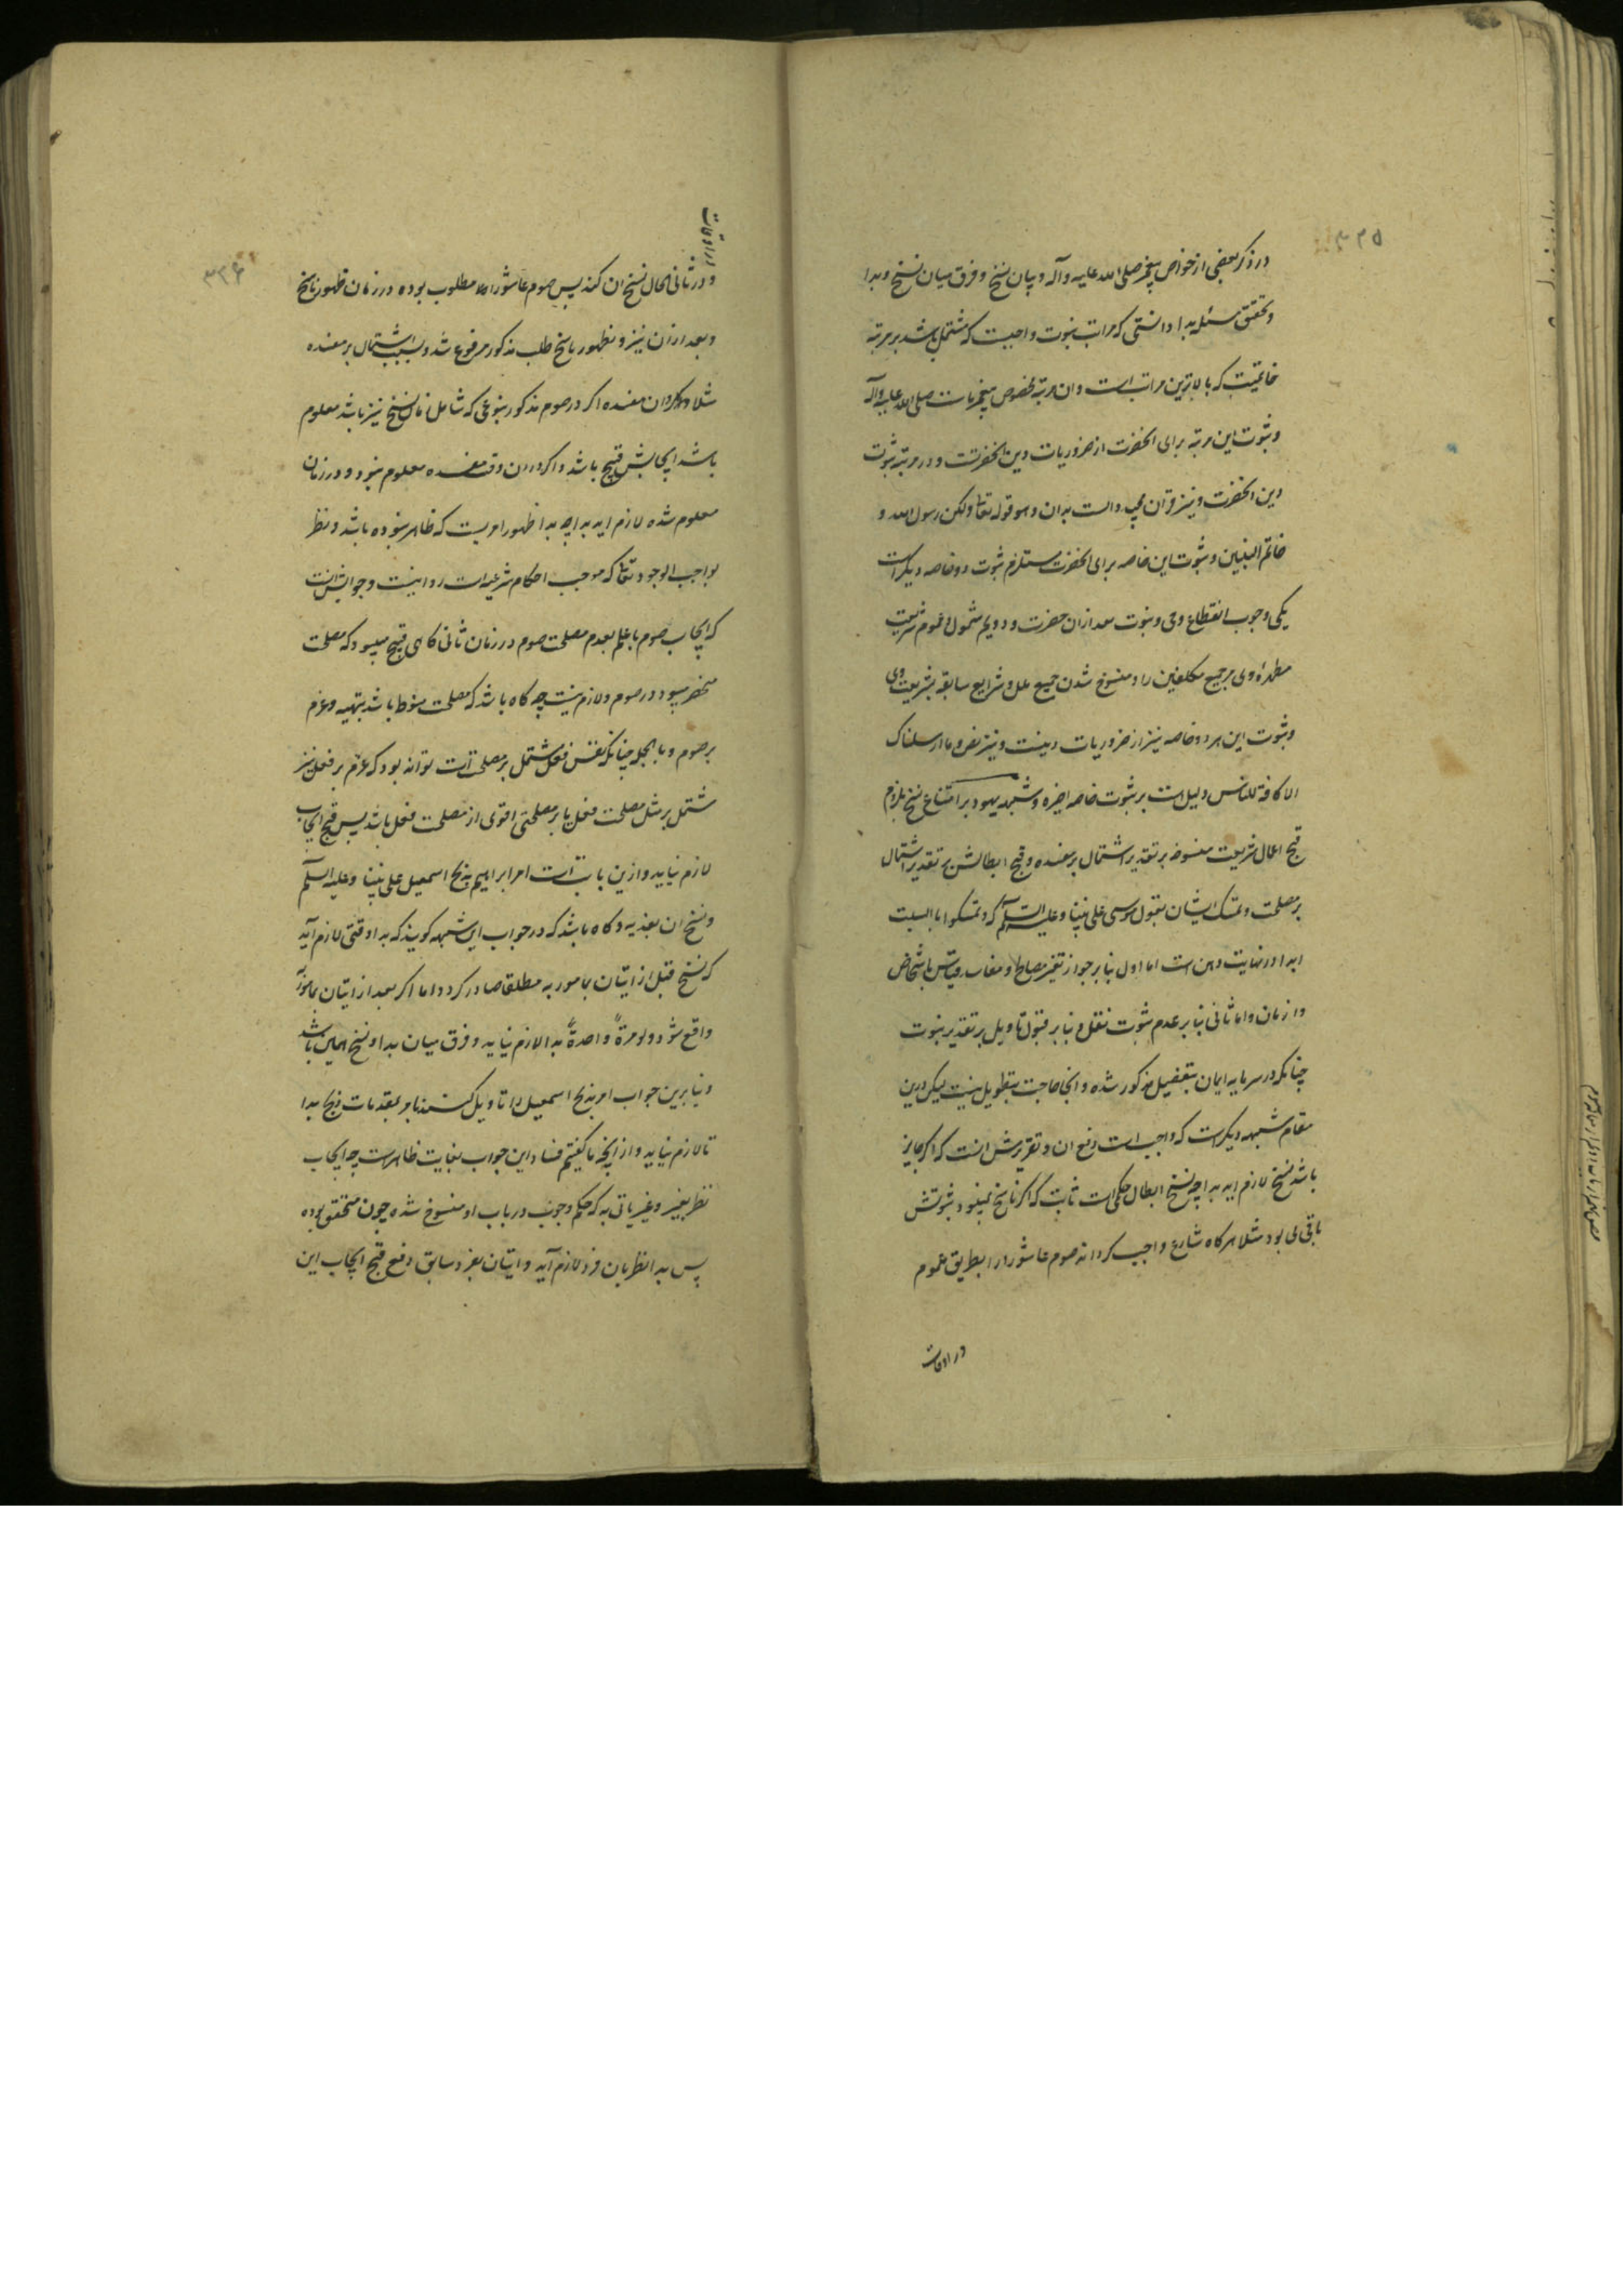 ۳۲۵
در ذکر بعضی از خواص پیغمبر صلی الله علیه و آله و بیان نسخ و فرق میان نسخ و بدا
و تحقیق مسئله بدا دانستی که مراتب نبوت واجبست که مشتمل باشد بر مرتبه
خاتمیت که بالاترین مراتب است و ان مرتبه مخصوص پیغمبر ماست صلی الله علیه و آله
و ثبوت این مرتبه برای انحضرت از ضروریات دین انحضرتست و در مرتبه ثبوت
دین انحضرت و نیز قران مجید دالست بدان و هو قوله تعالی ولکن رسول الله و
خاتم النبیین و ثبوت این خاصه برای انحضرت مستلزم ثبوت دو خاصه دیکر است
یکی وجوب انقطاع وحی و نبوت بعد از ان حضرت و دویم شمول و عموم شریعت
مطهره وی بر جمیع مکلفین را و منسوخ شدن جمیع ملل و شرایع سابقه بشریعت وی
و ثبوت این هر دو خاصه نیز از ضروریات دینست و نیز نص و ما ارسلناک
الا کافة للناس دلیل است بر ثبوت خاصه اخیره و شبهه یهود بر امتناع نسخ بلزوم
قبح اعمال شریعت منسوخه بر تقدیر اشتمال بر مفسده و قبح ابطالش بر تقدیر اشتمال
بر مصلحت و تمسک ایشان بقول موسی علی نبینا و علیه السلام که و تمسکوا بالسبت
ابدا در نهایت وهن است اما اول بنا بر جواز تغیر مصالح و مفاسد بقیاس باشخاص
و ازمان و اما ثانی بنا بر عدم ثبوت نقل و بنا بر قبول تاویل بر تقدیر ثبوت
چنانکه در سرمایه ایمان بتفصیل مذکور شده و اینجا حاجت بتطویل نیست لیکن درین
مقام شبهه دیکرست که واجب است دفع ان و تقریرش انست که اکر جایز
باشد نسخ لازم اید بدا چه نسخ ابطال حکمی است ثابت که اکر ناسخ نمیبود ثبوتش
باقی می بود مثلا هر کاه شارع واجب کرداند صوم عاشورا را بطریق عموم
در اوقات
۳۲۶
در اوقات
و در ثانی الحال نسخ ان کند پس صوم عاشورا اولا مطلوب بوده در زمان ظهور ناسخ
و بعد از ان نیز و بظهور ناسخ طلب مذکور مرفوع شد و بسبب اشتمال بر مفسده
مثلا و ان مفسده اکر در صوم مذکور بنوعی که شامل زمان نسخ نیز باشد معلوم
باشد ایجابش قبیح باشد و اکر در ان وقت مفسده معلوم نبود و در زمان
معلوم شده لازم اید بدا چه بدا ظهور امریست که ظاهر نبوده باشد و نظر
بواجب الوجود تعالی که موجب احکام شرعیه است روا نیست و جوابش انست
که ایجاب صوم با علم بعدم مصلحت صوم در زمان ثانی کاهی قبیح میبود که مصلحت
منحصر میبود در صوم و لازم نیست چه کاه باشد که مصلحت منوط باشد بتهیه و عزم
بر صوم و بالجمله چنانکه نفس فعل مشتمل بر مصلحت است تواند بود که عزم بر فعل نیز
مشتمل بر مثل مصلحت فعل یا بر مصلحتی اقوی از مصلحت فعل باشد پس قبح ایجاب
لازم نیاید و ازین باب است امر ابراهیم بذبح اسمعیل علی نبینا و علیه السلم
و نسخ ان بفدیه و کاه باشد که در جواب این شبهه کویند که بدا وقتی لازم آید
که نسخ قبل از اتیان بمامور به مطلقا صادر کردد اما اکر بعد از اتیان بمامور به
واقع شود و لو مرةً واحدةً بدا لازم نیاید و فرق میان بدا و نسخ همین باشد
و بنا برین جواب امر بذبح اسمعیل را تاویل کنند بامر بمقدمات ذبح بدا
تا لازم نیاید و از انچه ما کفتیم فساد این جواب بغایت ظاهرست چه ایجاب
نظر بغیر ماتی به که حکم وجوب در باب او منسوخ شده چون متحقق بوده
پس بدا نظر بان فرد لازم آید و اتیان بفرد سابق دفع قبح ایجاب این